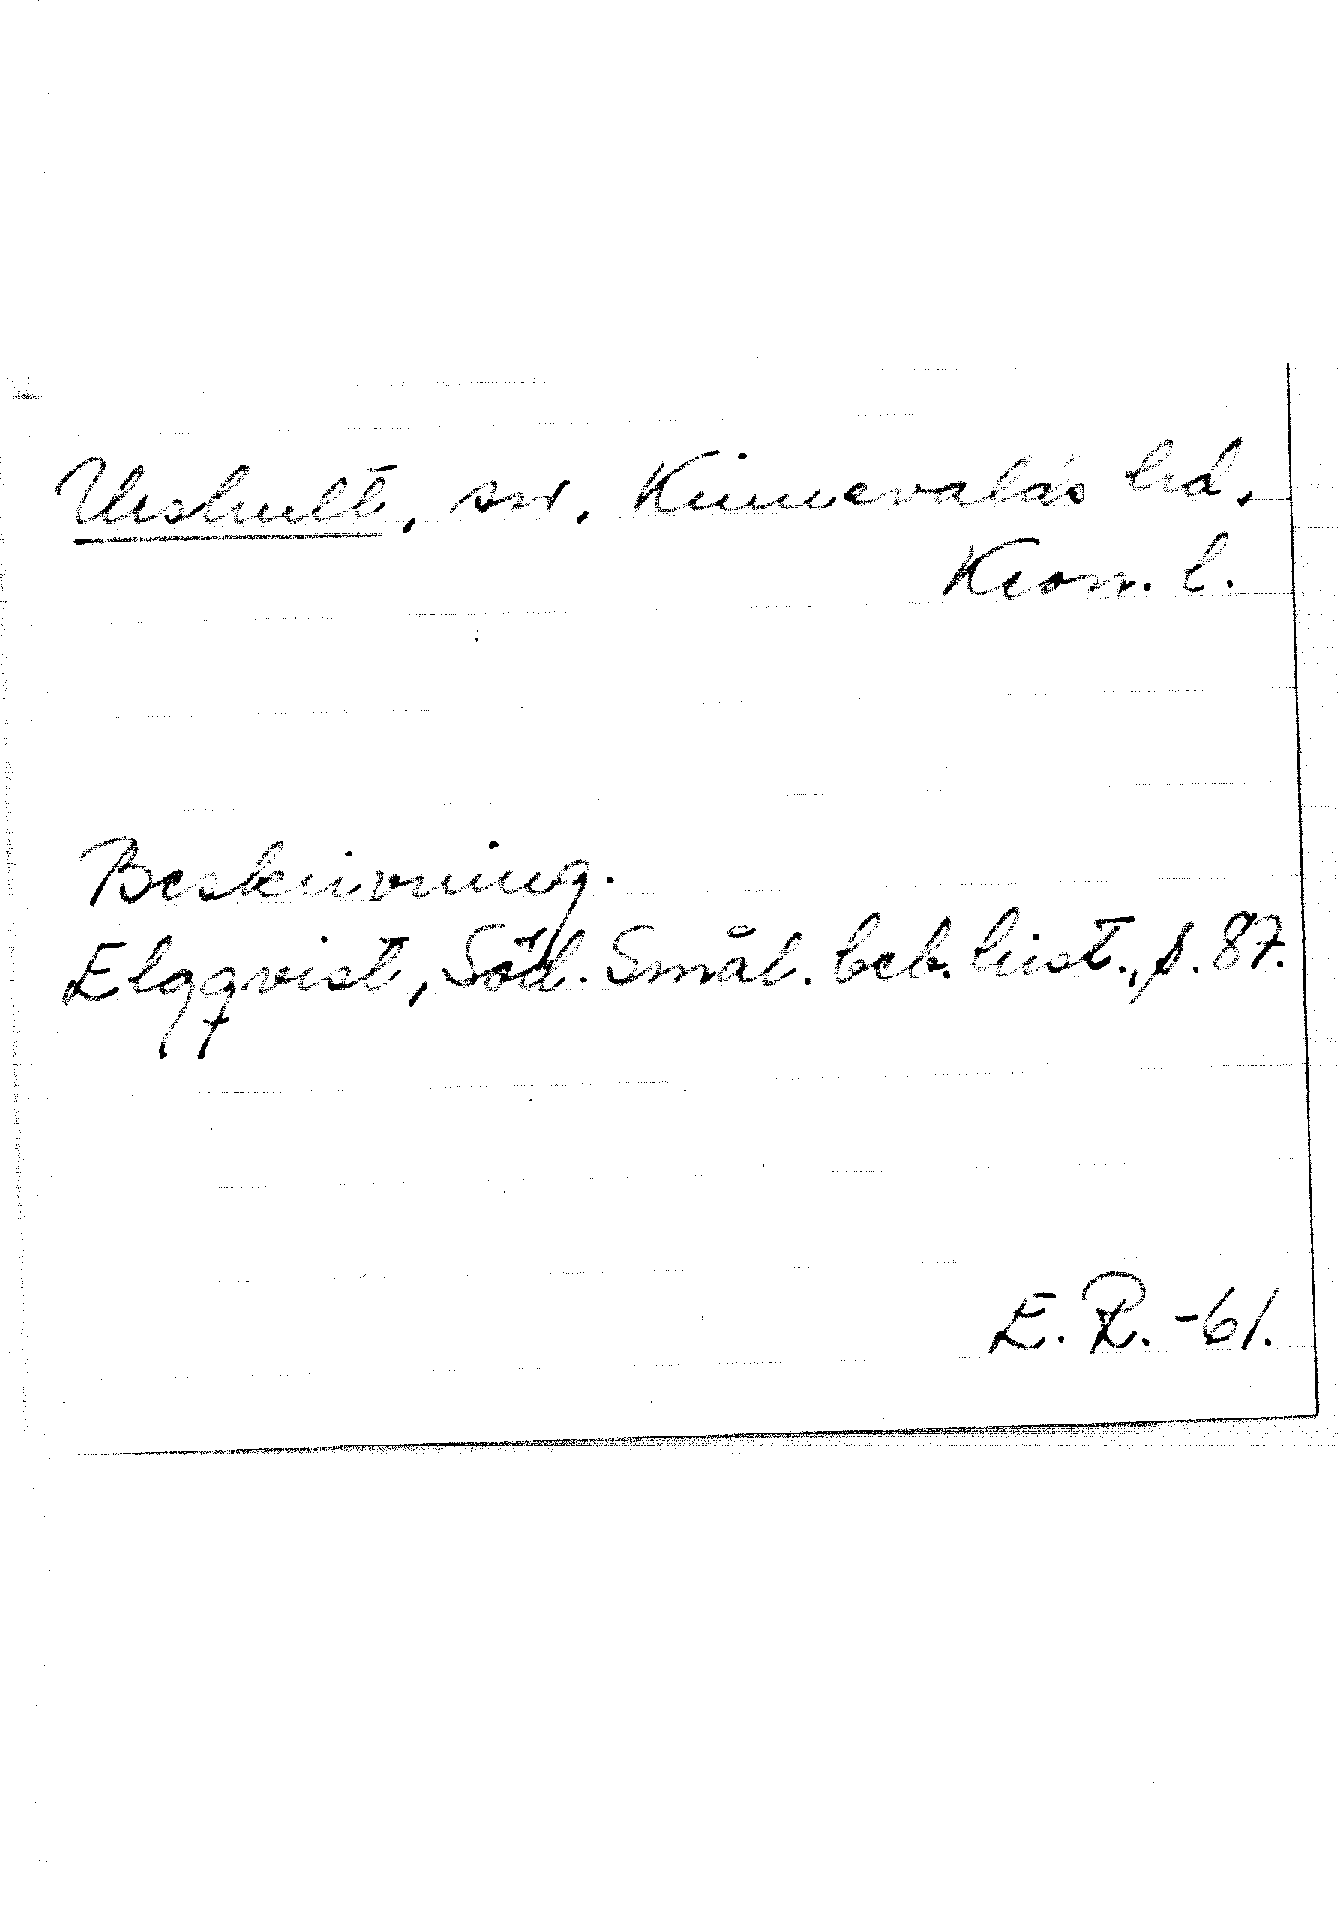 Urshult, sn, Kinnevalds hd,
Kron. l.
Beskrivning.
Elgqvist, Söd. Smål. beb. hist., s. 87.
E. R. -61.